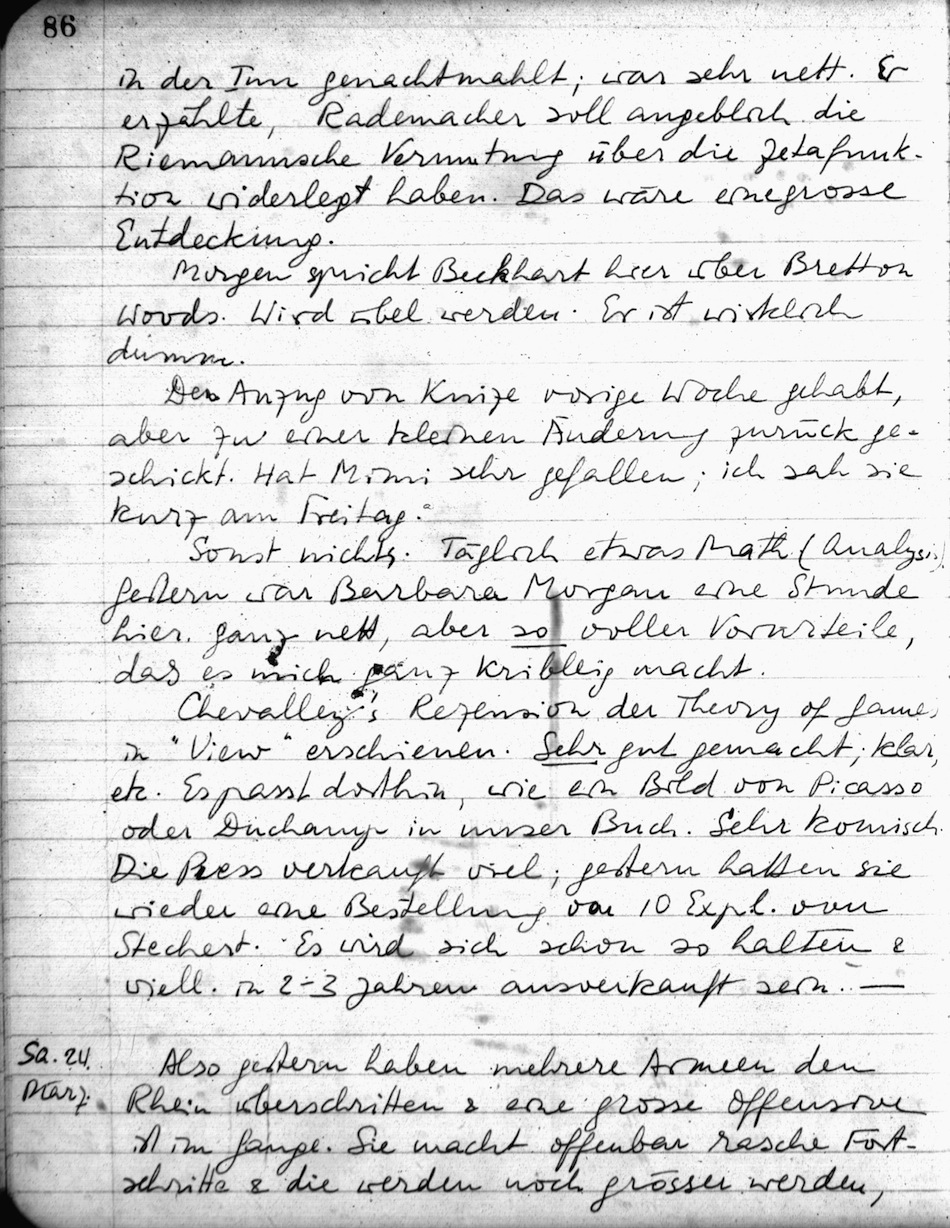 86
in der Inn genachtmahlt; war sehr nett. Er
erzählte, Rademacher soll angeblich die
Riemannsche Vermutung über die Zetafunk-
tion widerlegt haben. Das wäre eine grosse
Entdeckung.
Morgen spricht Beckhart hier über Bretton
Woods. Wird übel werden. Er ist wirklich
dumm.
Den Anzug von Knize vorige Woche gehabt,
aber zu einer kleinen Änderung zurück ge-
schickt. Hat Mimi sehr gefallen; ich sah sie
kurz am Freitag.
Sonst nichts. Täglich etwas Math (Analysis).
Gestern war Barbara Morgan eine Stunde
hier. Ganz nett, aber so voller Vorurteile,
das es mich ganz kribbleig macht.
Chevalley's Rezension der Theory of Games
in "View" erschienen. Sehr gut gemacht; klar,
etc. Es passt dorthin, wie ein Bild von Picasso
oder Duchamp in unser Buch. Sehr komisch.
Die Press verkauft viel; gestern hatten sie
wieder eine Bestellung von 10 Expl. von
Stechert. Es wird sich schon so halten &
viell. in 2-3 Jahren ausverkauft sein. —
Sa. 24.
März.
Also gestern haben mehrere Armeen den
Rhein überschritten & eine grosse Offensive
ist im Gange. Sie macht offenbar rasche Fort-
schritte & die werden noch grösser werden,